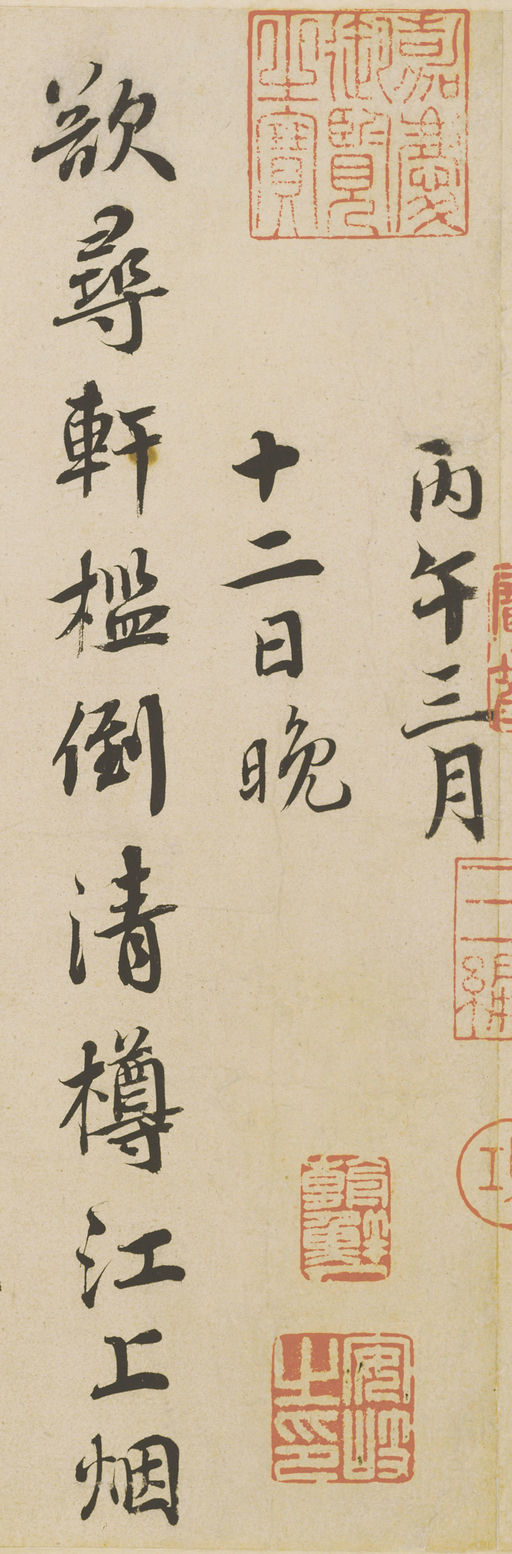 嘉慶御覽之寶
丙午三月
十二日晚
欲尋軒檻倒清樽江上烟
安岐之印